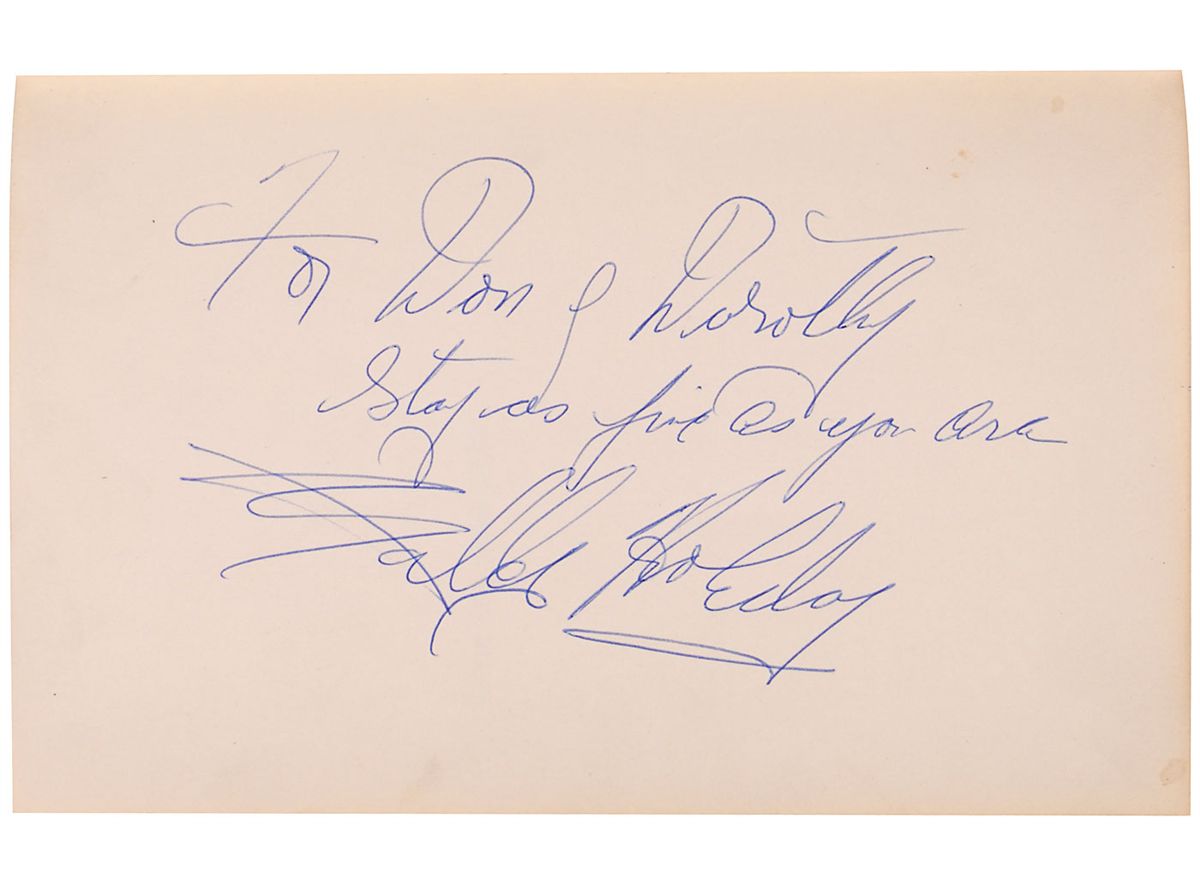 For Don & Dorothy
Stay as fine as you are
Billie Holiday